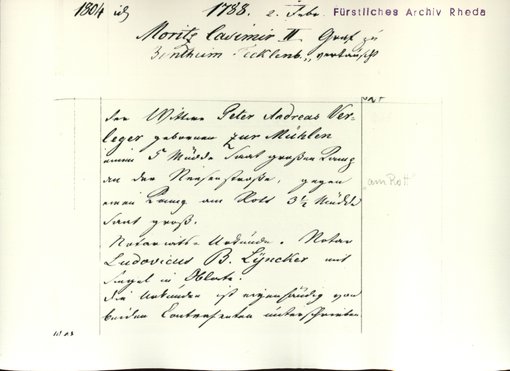 1804 1788. 2. Febr. Fürstliches Archiv Rheda
Moritz Casimir II Graf zu
Bentheim Tecklenb., vertauscht
der Wittwe Peter Andreas Ver-
leger geborenen zur Mühlen
einen 5 Müdde Saat großen Kamp
an der Neesenstraße, gegen
einen Kamp am Rott 3 1/2 Müdde
Saat groß.
am Rott
Notariats-Urkunde. Notar
Ludovicus B. Lÿncker mit
Siegel in Oblate.
Die Urkunden ist eigenhändig von
beiden Contrahenten unterschrieben.